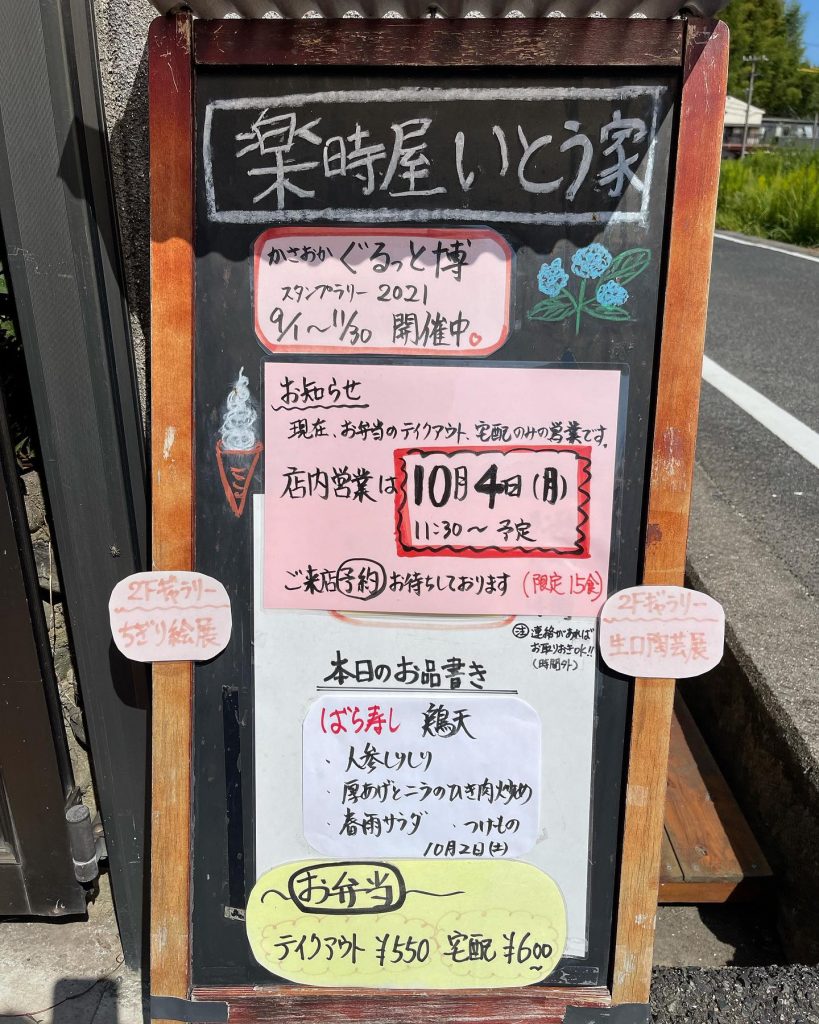 楽時屋 いとう家
かさおか ぐるっと博
スタンプラリー 2021
9/1〜11/30 開催中
お知らせ
現在、お弁当のテイクアウト、宅配のみの営業です。
店内営業は 10月4日(月)
11:30〜 予定
ご来店予約お待ちしております (限定15食)
2Fギャラリー
ちぎり絵展
2Fギャラリー
生口陶芸展
注 連絡があれば
お取りおきOK!!
(時間外)
本日のお品書き
ばら寿し 鶏天
・人参しりしり
・厚あげとニラのひき肉炒め
・春雨サラダ ・つけもの
10月2日(土)
お弁当
テイクアウト ¥550 宅配 ¥600〜